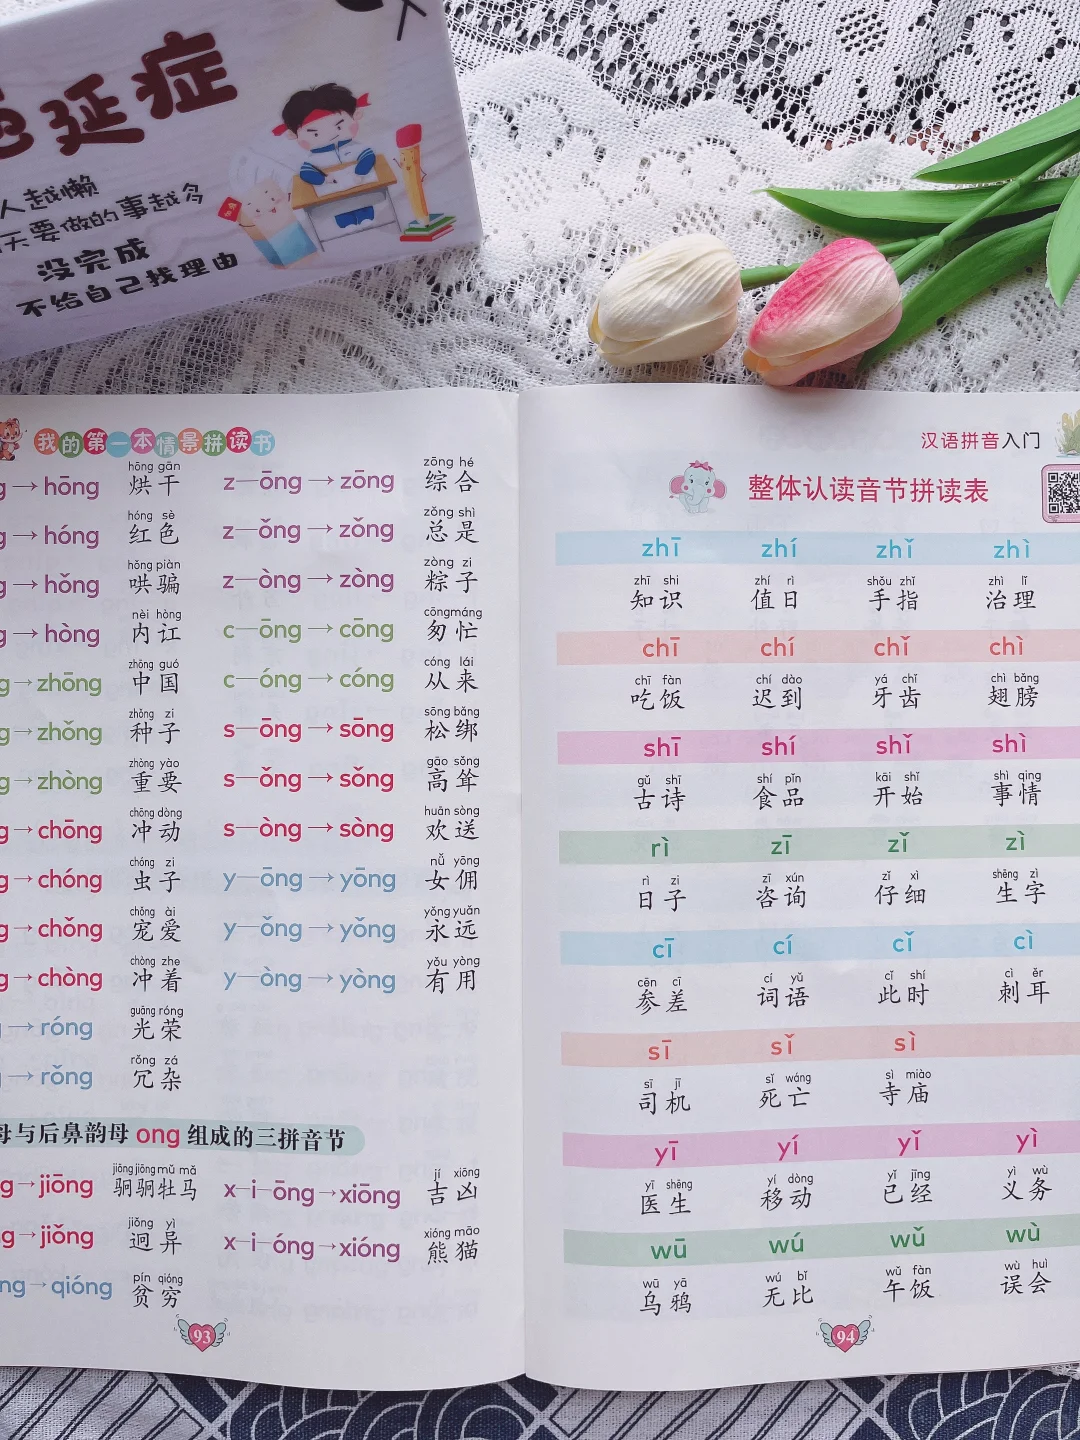 延症
人越懒
天要做的事越多
没完成
不给自己找理由
我的第一本情景拼读书
hōng gān
g→hōng 烘干
zōng hé
z—ōng→zōng 综合
hóng sè
g→hóng 红色
zǒng shì
z—ǒng→zǒng 总是
hǒng piàn
g→hǒng 哄骗
zòng zi
z—òng→zòng 粽子
nèi hòng
g→hòng 内讧
cōng máng
c—ōng→cōng 匆忙
zhōng guó
g→zhōng 中国
cóng lái
c—óng→cóng 从来
zhǒng zi
g→zhǒng 种子
sōng bǎng
s—ōng→sōng 松绑
zhòng yào
g→zhòng 重要
gāo sǒng
s—ǒng→sǒng 高耸
chōng dòng
g→chōng 冲动
huān sòng
s—òng→sòng 欢送
chóng zi
g→chóng 虫子
nǚ yōng
y—ōng→yōng 女佣
chǒng ài
g→chǒng 宠爱
yǒng yuǎn
y—ǒng→yǒng 永远
chòng zhe
g→chòng 冲着
yǒu yòng
y—òng→yòng 有用
guāng róng
→róng 光荣
rǒng zá
→rǒng 冗杂
母与后鼻韵母 ong 组成的三拼音节
jiōng jiōng mǔ mǎ
g→jiōng 駉駉牡马
jí xiōng
x—i—ōng→xiōng 吉凶
jiǒng yì
ng→jiǒng 迥异
xióng māo
x—i—óng→xióng 熊猫
pín qióng
ng→qióng 贫穷
93
汉语拼音入门
整体认读音节拼读表
zhī zhí zhǐ zhì
zhī shi zhí rì shǒu zhǐ zhì lǐ
知识 值日 手指 治理
chī chí chǐ chì
chī fàn chí dào yá chǐ chì bǎng
吃饭 迟到 牙齿 翅膀
shī shí shǐ shì
gǔ shī shí pǐn kāi shǐ shì qing
古诗 食品 开始 事情
rì zī zǐ zì
rì zi zī xún zǐ xì shēng zì
日子 咨询 仔细 生字
cī cí cǐ cì
cēn cī cí yǔ cǐ shí cì ěr
参差 词语 此时 刺耳
sī sǐ sì
sī jī sǐ wáng sì miào
司机 死亡 寺庙
yī yí yǐ yì
yī shēng yí dòng yǐ jīng yì wù
医生 移动 已经 义务
wū wú wǔ wù
wū yā wú bǐ wǔ fàn wù huì
乌鸦 无比 午饭 误会
94